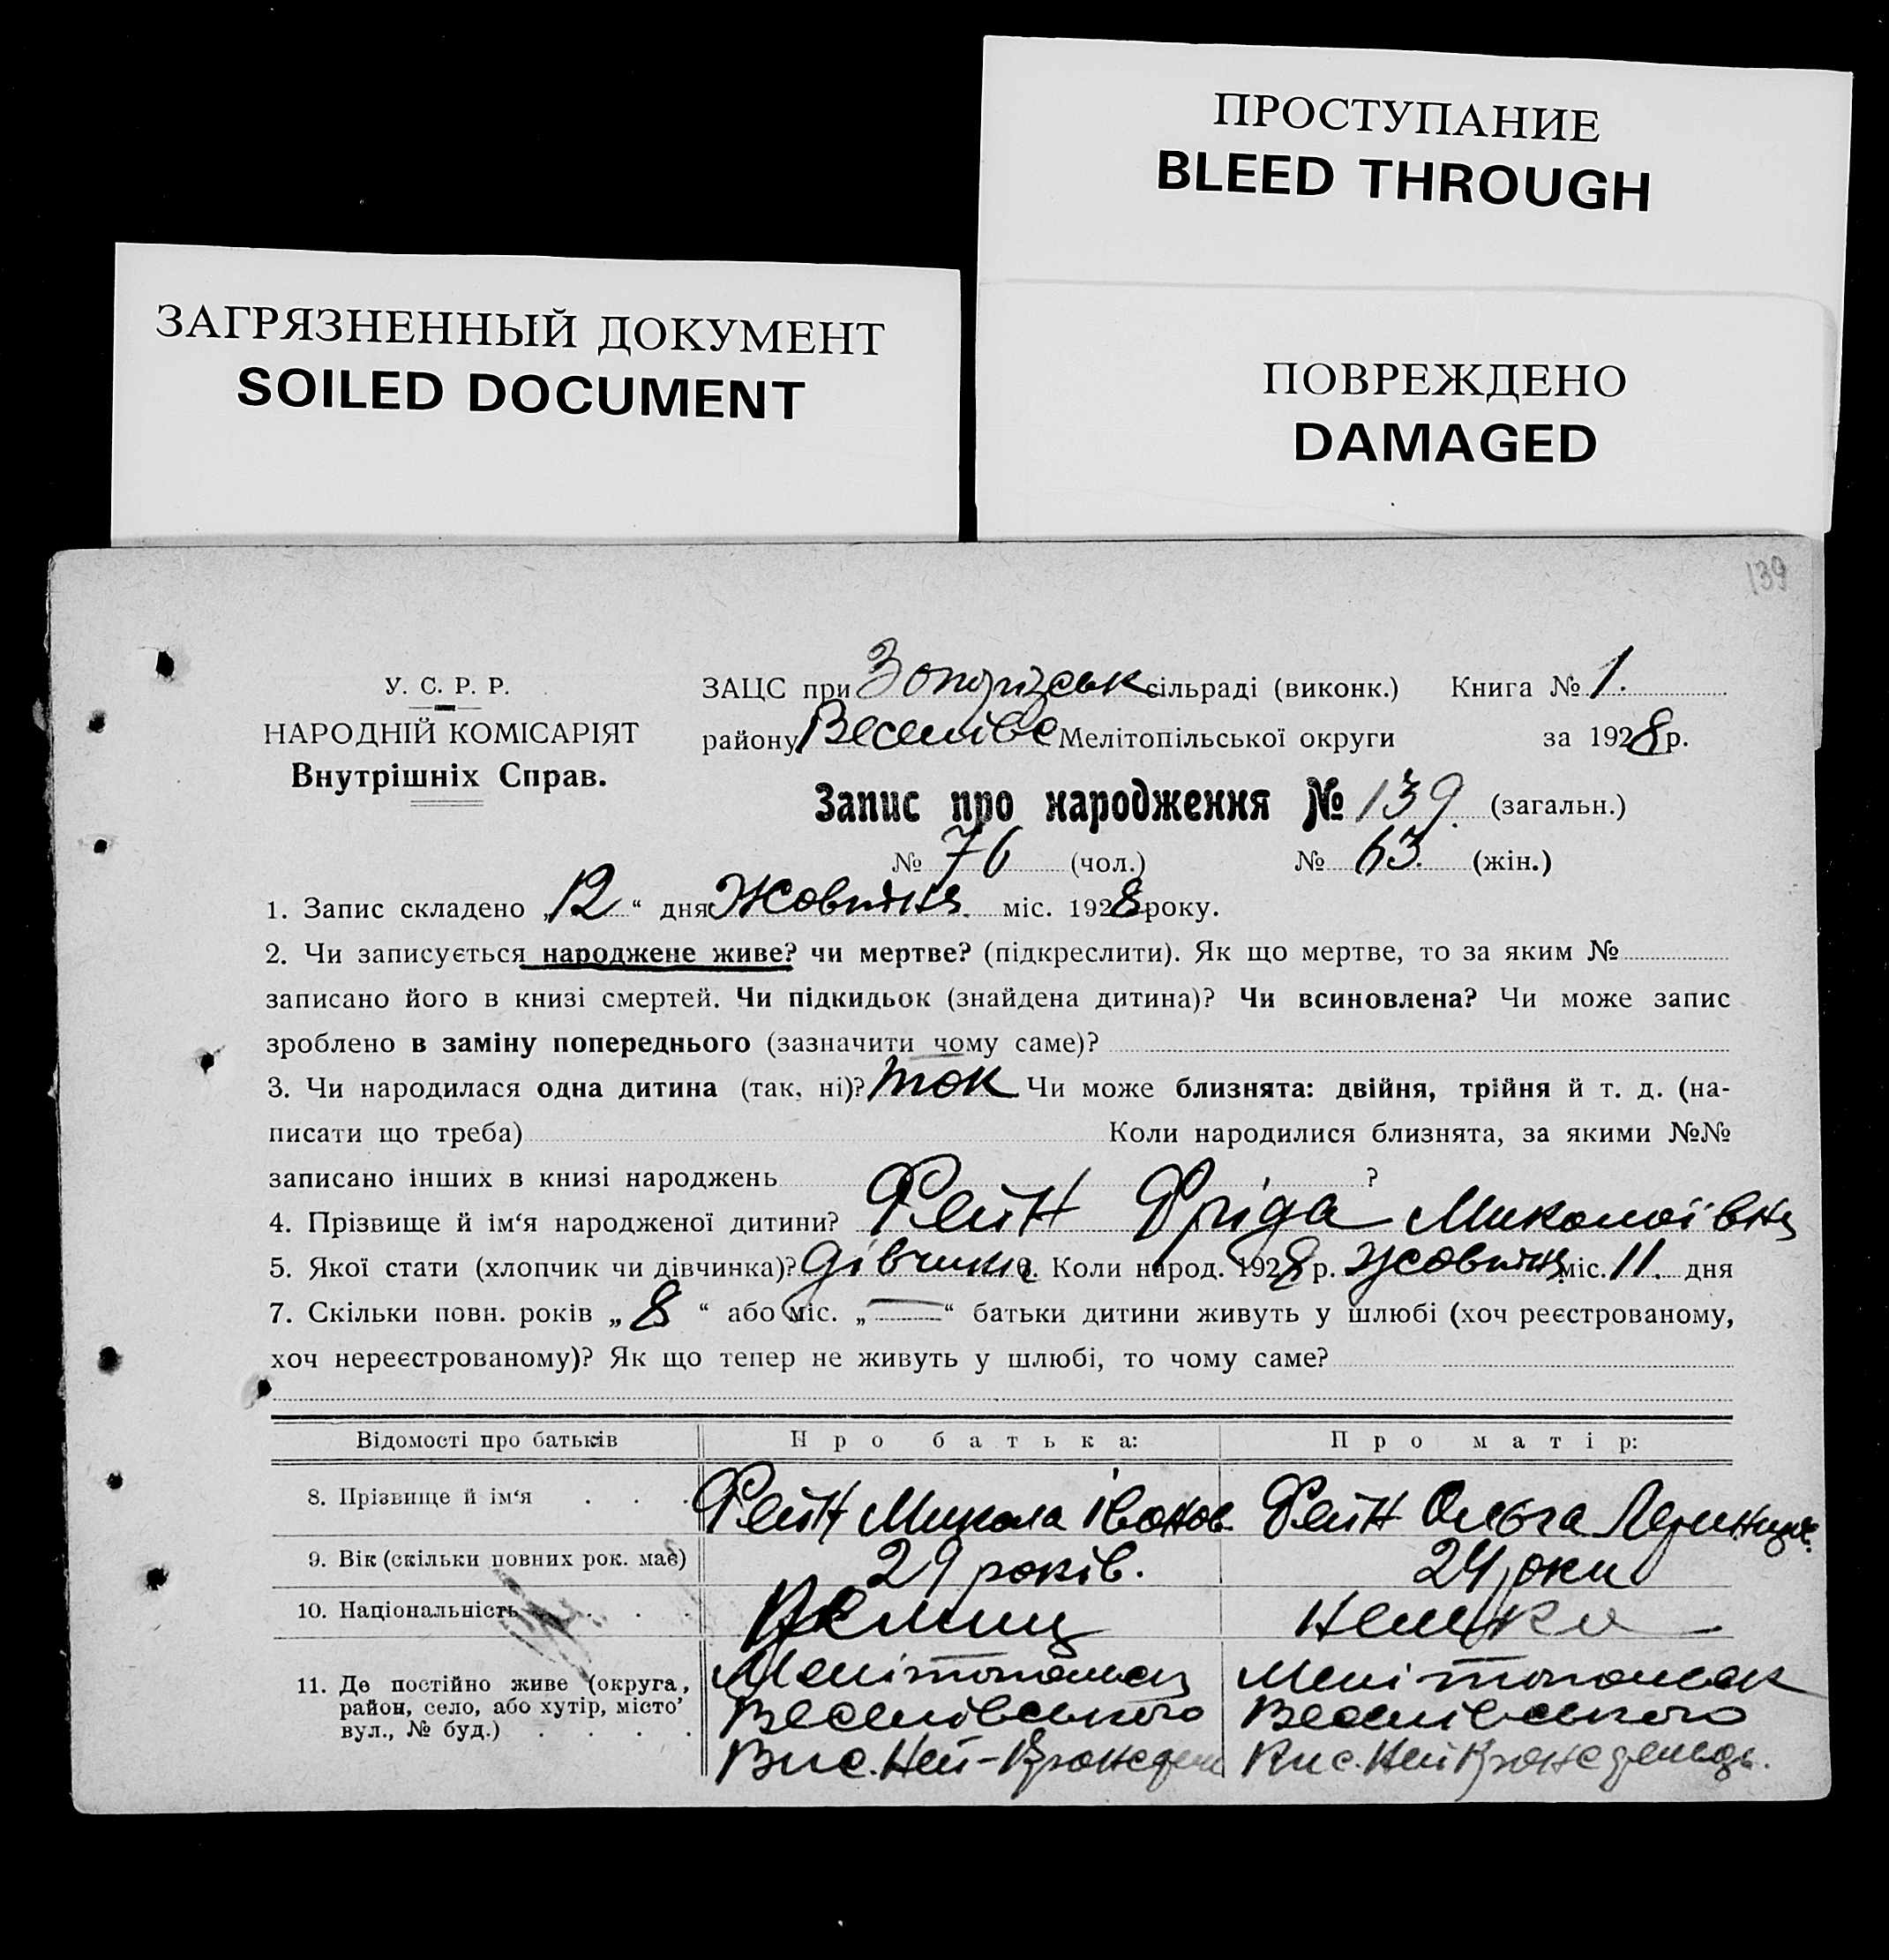 ПРОСТУПАНИЕ
BLEED THROUGH
ЗАГРЯЗНЕННЫЙ ДОКУМЕНТ
SOILED DOCUMENT
ПОВРЕЖДЕНО
DAMAGED
139
У. С. Р. Р.
НАРОДНІЙ КОМІСАРІЯТ
Внутрішніх Справ.
ЗАЦС при сільраді (виконк.) Книга № 1.
району Веселівс Мелітопільської округи за 1928 р.
Запис про народження № 139. (загальн.)
№ 76 (чол.) № 63. (жін.)
1. Запис складено „12“ дня Жовтня міс. 1928 року.
2. Чи записується народжене живе? чи мертве? (підкреслити). Як що мертве, то за яким №
записано його в книзі смертей. Чи підкидьок (знайдена дитина)? Чи всиновлена? Чи може запис
зроблено в заміну попереднього (зазначити чому саме)?
3. Чи народилася одна дитина (так, ні)? так Чи може близнята: двійня, трійня й т. д. (на-
писати що треба) Коли народилися близнята, за якими №№
записано інших в книзі народжень ?
4. Прізвище й ім‘я народженої дитини? Фейн Фріда Миколаївна
5. Якої стати (хлопчик чи дівчинка)? дівчинка 6. Коли народ. 1928 р. жовтня міс. 11. дня
7. Скільки повн. років „8“ або міс. „—“ батьки дитини живуть у шлюбі (хоч реєстрованому,
хоч нереєстрованому)? Як що тепер не живуть у шлюбі, то чому саме?
Відомості про батьків Про батька: Про матір:
8. Прізвище й ім‘я . . . Фейн Микола Іванов. Фейн Ольга
9. Вік (скільки повних рок. має) 29 років. 24 роки
10. Національність . . . Німиць Немка
11. Де постійно живе (округа,
район, село, або хутір, місто’
вул., № буд.) . . . .
Веселівського Веселівського
Вис. Ней-